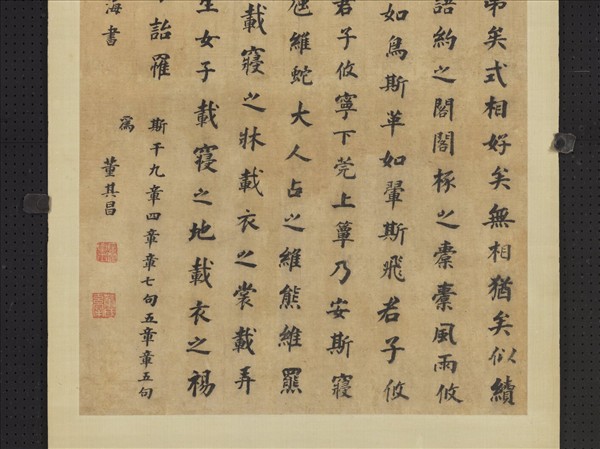 弟矣式相好矣無相猶矣似續
語約之閣閣椓之橐橐風雨攸
如鳥斯革如翬斯飛君子攸
君子攸寧下莞上簟乃安斯寢
虺維蛇大人占之維熊維羆
載寢之牀載衣之裳載弄
生女子載寢之地載衣之裼
詒罹
斯干九章四章章七句五章章五句
海書
為
董其昌